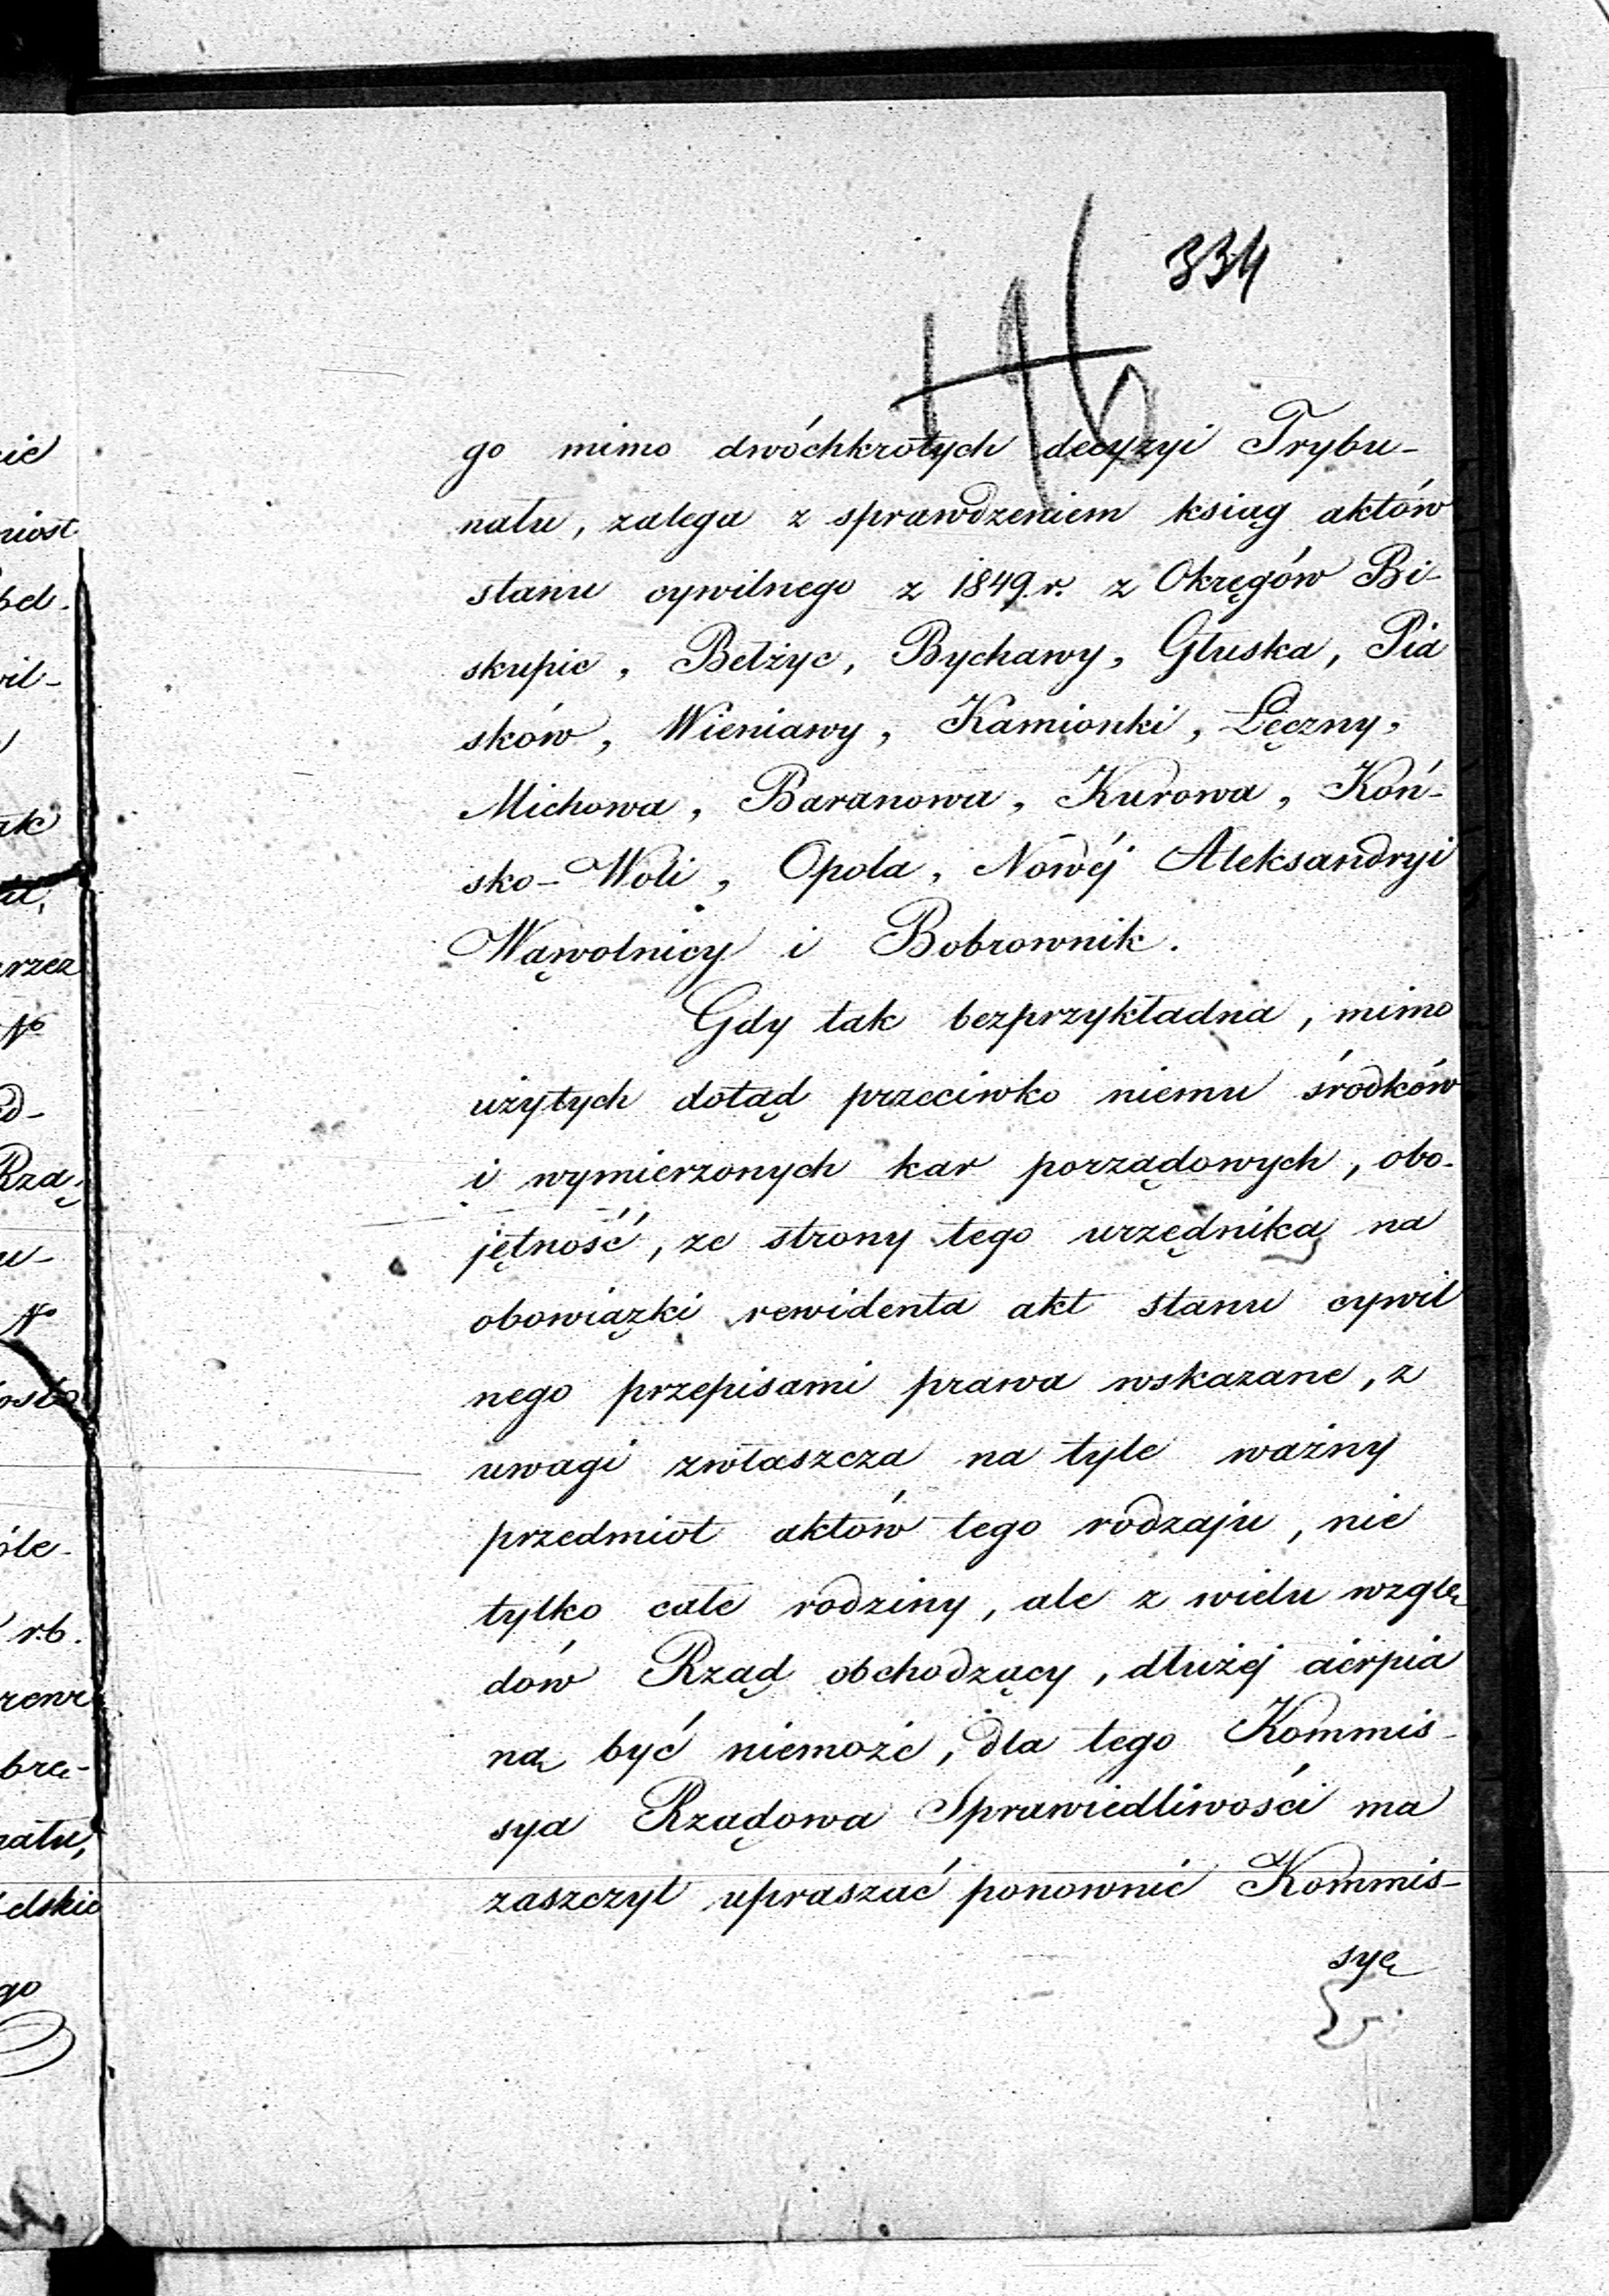 334
go mimo dwóchkrotych decyzyi Trybu-
nału, zalega z sprawdzeniem ksiąg aktów
stanu cywilnego z 1849 r. z Okręgów Bi-
skupic, Bełżyc, Bychawy, Głuska, Pia
sków, Wieniawy, Kamionki, Łęczny,
Michowa, Baranowa, Kurowa, Koń-
sko-Woli, Opola, Nowéj Aleksandryi
Wąwolnicy i Bobrownik.
Gdy tak bezprzykładna, mimo
użytych dotąd przeciwko niemu środków
i wymierzonych kar porządowych, obo-
jętność, ze strony tego urzędnika na
obowiązki rewidenta akt stanu cywil
nego przepisami prawa wskazane, z
uwagi zwłaszcza na tyle ważny
przedmiot aktów tego rodzaju, nie
tylko całe rodziny, ale z wielu wzglę
dów Rząd obchodzący, dłużéj cierpia
ną być niemoże, dla tego Kommis-
sya Rządowa Sprawiedliwości ma
zaszczyt upraszać ponownie Kommis-
syę